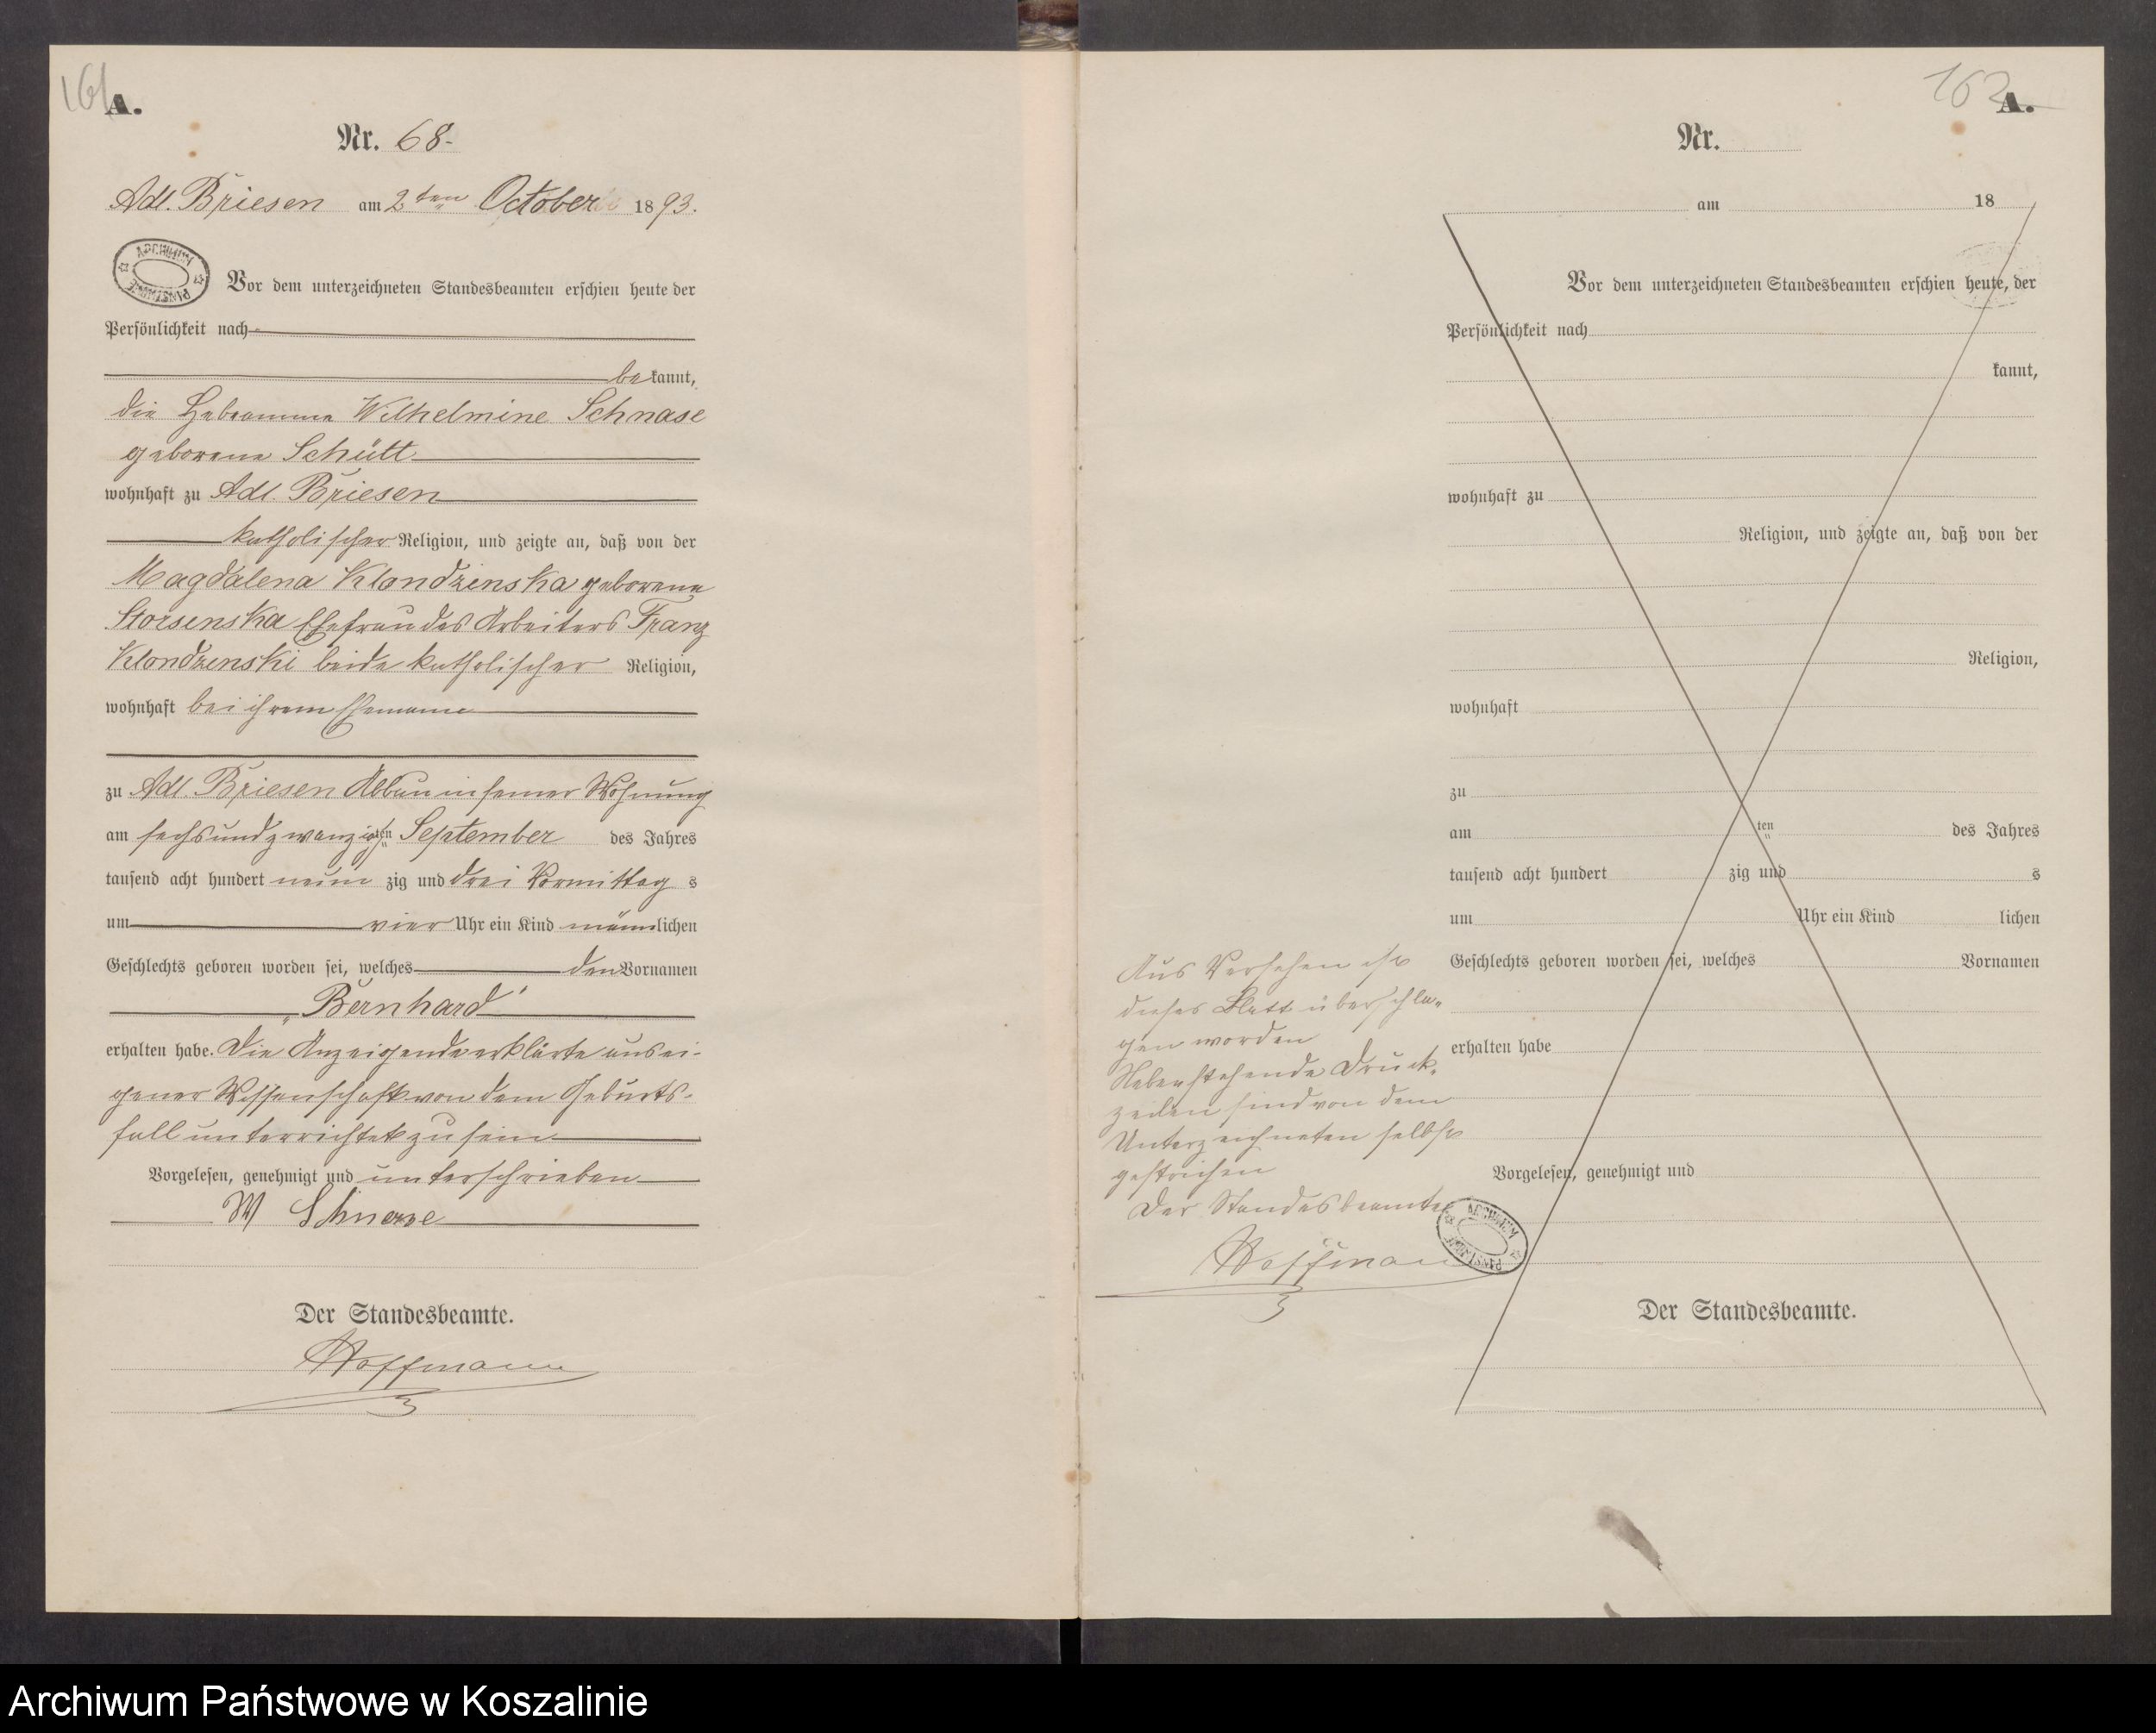 161
A.
Nr. 68.
Adl. Briesen am 2ten October 1893.
ARCHIWUM PAŃSTWOWE
Vor dem unterzeichneten Standesbeamten erschien heute der
Persönlichkeit nach
bekannt,
die Hebeamme Wilhelmine Schnase
geborene Schütt
wohnhaft zu Adl. Briesen
katholischer Religion, und zeigte an, daß von der
Magdalena Klondzinska geborene
Storsenska Ehefrau des Arbeiters Franz
Klondzenski beide katholischer Religion,
wohnhaft bei ihrem Ehemanne
zu Adl. Briesen Abbau in seiner Wohnung
am sechsundzwanzigsten September des Jahres
tausend acht hundert neun zig und drei Vormittag s
um vier Uhr ein Kind männlichen
Geschlechts geboren worden sei, welches den Vornamen
„Bernhard"
erhalten habe. Die Anzeigende erklärte aus ei-
gener Wissenschaft von dem Geburts-
fall unterrichtet zu sein
Vorgelesen, genehmigt und unterschrieben
W Schnase
Der Standesbeamte.
Hoffmann
162
A.
Nr.
am 18
Vor dem unterzeichneten Standesbeamten erschien heute, der
Persönlichkeit nach
kannt,
wohnhaft zu
Religion, und zeigte an, daß von der
Religion,
wohnhaft
zu
am ten des Jahres
tausend acht hundert zig und s
um Uhr ein Kind lichen
Geschlechts geboren worden sei, welches Vornamen
erhalten habe
Vorgelesen, genehmigt und
Der Standesbeamte.
Aus Versehen ist
dieses Blatt überschla-
gen worden
Nebenstehende Druck-
zeilen sind von dem
Unterzeichneten selbst
gestrichen
Der Standesbeamte
Hoffmann
ARCHIWUM PAŃSTWOWE
Archiwum Państwowe w Koszalinie